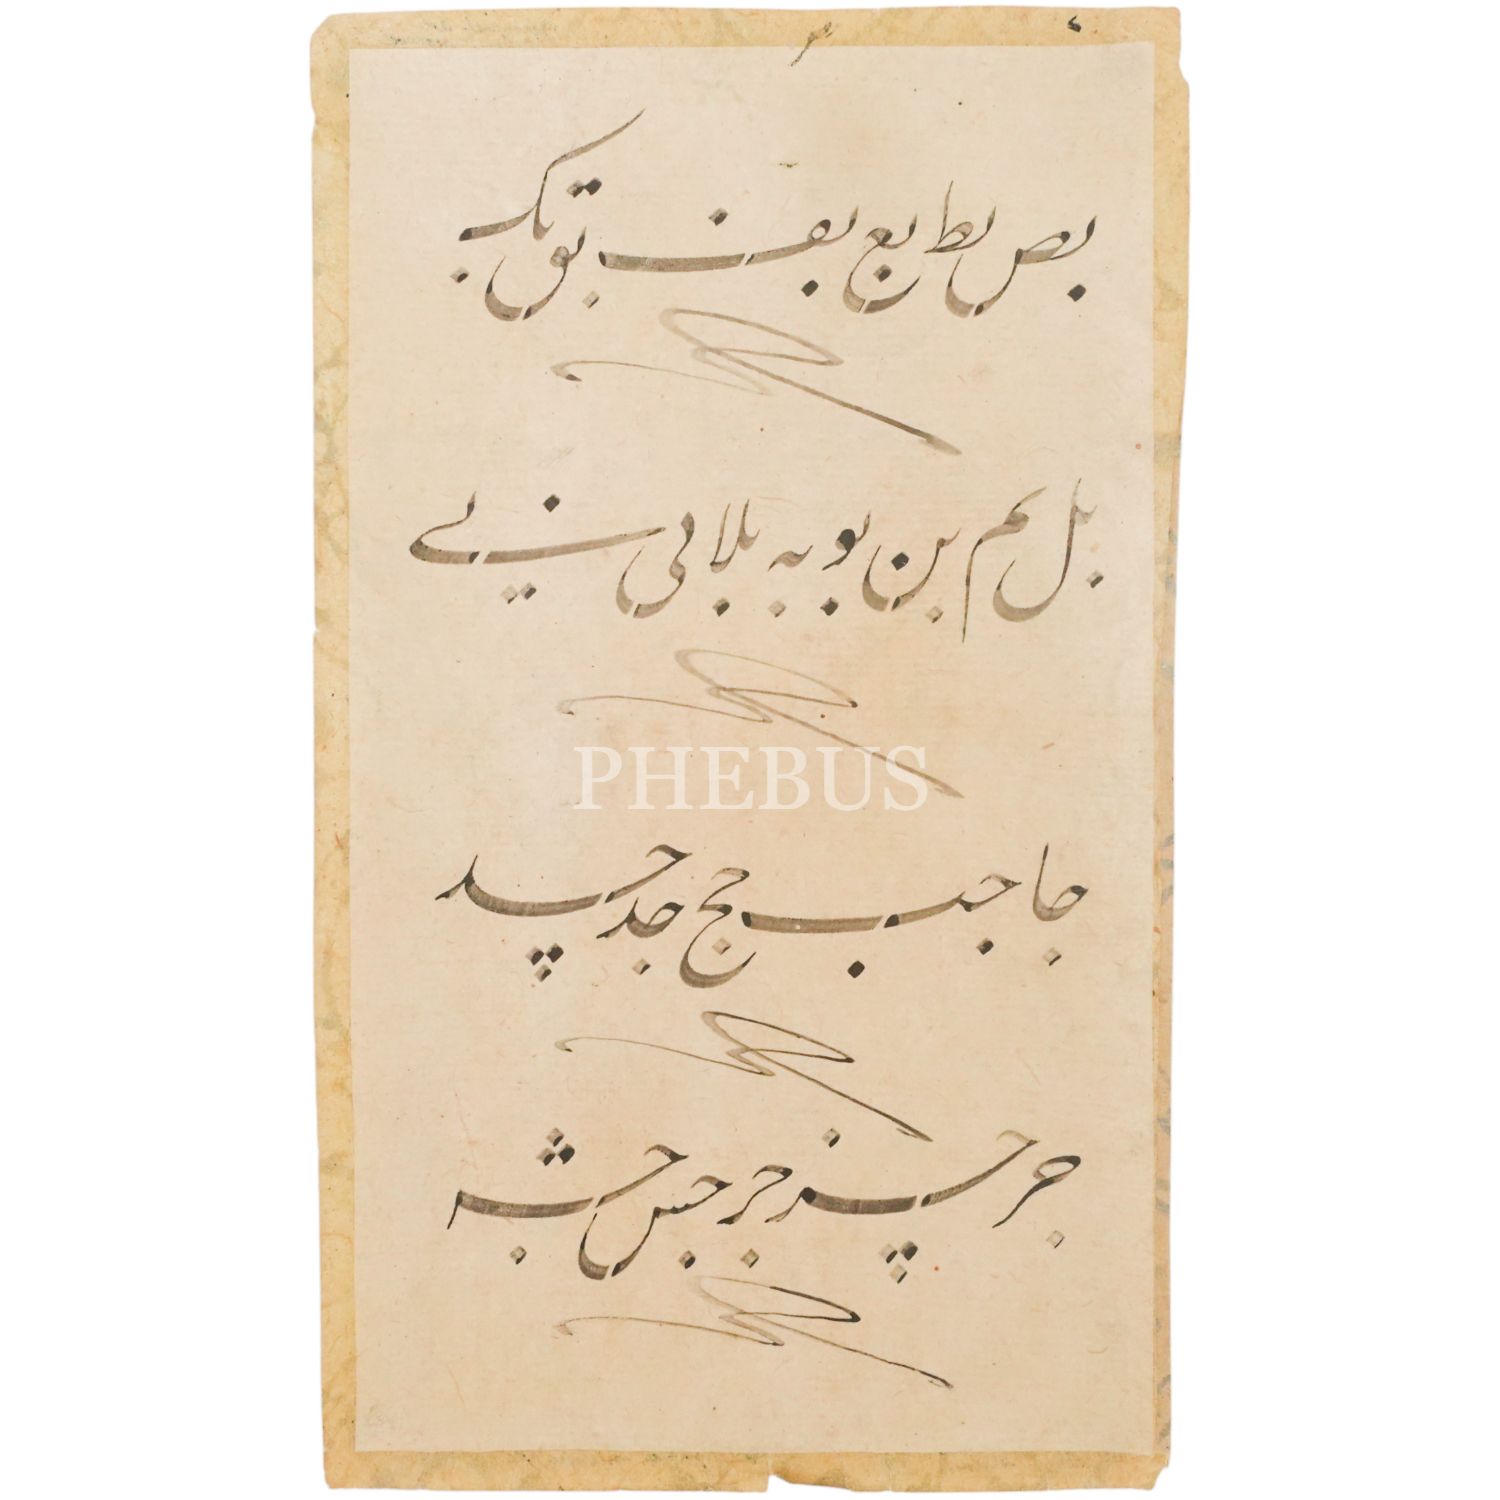 بص بط بع بف بق بک
بل بم بن بو به بلا بی نی
PHEBUS
جا جب جج جد چسد
جر چسر جز جس جسه